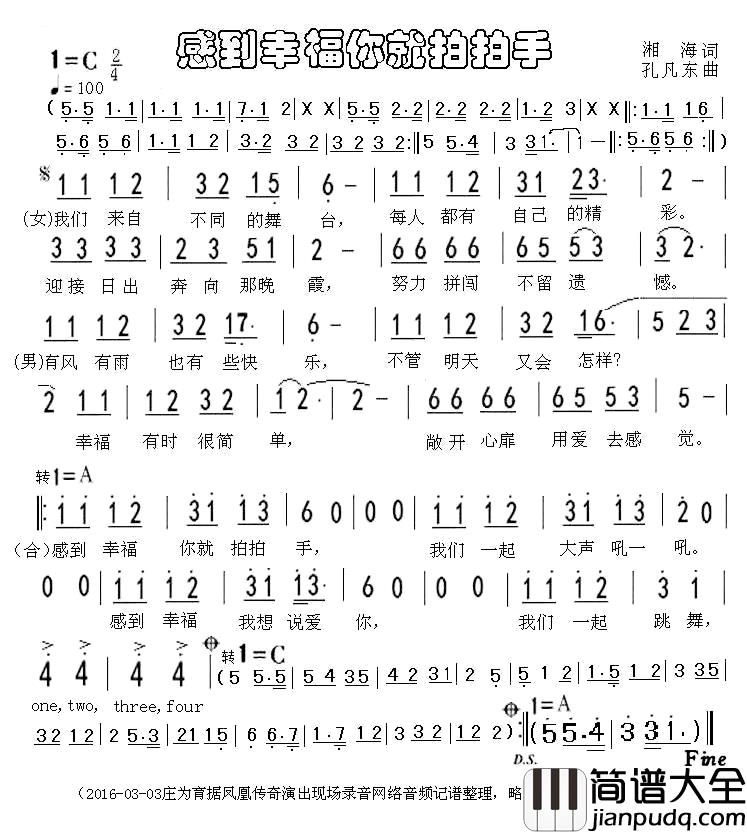 感到幸福你就拍拍手
1=C 2/4
♩=100
湘 海 词
孔凡东 曲
( 5·5 1·1 | 1·1 1·1 | 7·1 2 | X X | 5·5 2·2 | 2·2 2·2 | 1·2 3 | X X ‖: 1·1 16 |
5·6 5·6 | 1·1 2·2 | 3·2 3 2 | 3 2 3 2 :‖: 5 5·4 | 3 3 1· | 1 — :‖: 5·6 5·6 :‖ )
1 1 1 2 | 3 2 1 5 | 6 — | 1 1 1 2 | 3 1 2 3· | 2 — |
(女)我们 来自 不同 的舞 台, 每人 都有 自己 的精 彩。
3 3 3 3 | 2 3 5 1 | 2 — | 6 6 6 6 | 6 5 5 3 | 3 2· |
迎接 日出 奔向 那晚 霞, 努力 拼闯 不留 遗 憾。
1 1 1 2 | 3 2 1 7· | 6 — | 1 1 1 2 | 3 2 1 6· | 5 2 3 |
(男)有风 有雨 也有 些快 乐, 不管 明天 又会 怎样?
2 1 1 | 1 2 3 2 | 1 2· | 2 — | 6 6 6 6 | 6 5 5 3 | 5 — |
幸福 有时 很简 单, 敞开 心扉 用爱 去感 觉。
转1=A
‖: 1 1 1 2 | 3 1 1 3 | 6 0 | 0 0 | 1 1 1 2 | 3 1 1 3 | 2 0 |
(合)感到 幸福 你就 拍拍 手, 我们 一起 大声 吼一 吼。
0 0 | 1 1 1 2 | 3 1 1 3· | 6 0 | 0 0 | 1 1 1 2 | 3 1 |
感到 幸福 我想 说爱 你, 我们 一起 跳 舞,
4 4 | 4 4 | 转1=C (5 5·5 | 5 4 3 5 | 4 3 2 5 | 5·1 2 | 5 1 2 | 1·5 1 2 | 5 1 3 |
one, two, three, four
3 2 1 2 | 5·5 3·2 | 2 1 1 5 | 6 6·7 | 1·7 1 2 | 3 3 3 2 | 1 2 2 ) :‖ 1=A (5 5·4 | 3 3 1· ) ‖
D.S. Fine
(2016-03-03庄为育据凤凰传奇演出现场录音网络音频记谱整理,略
简谱大全
jianpudq.com